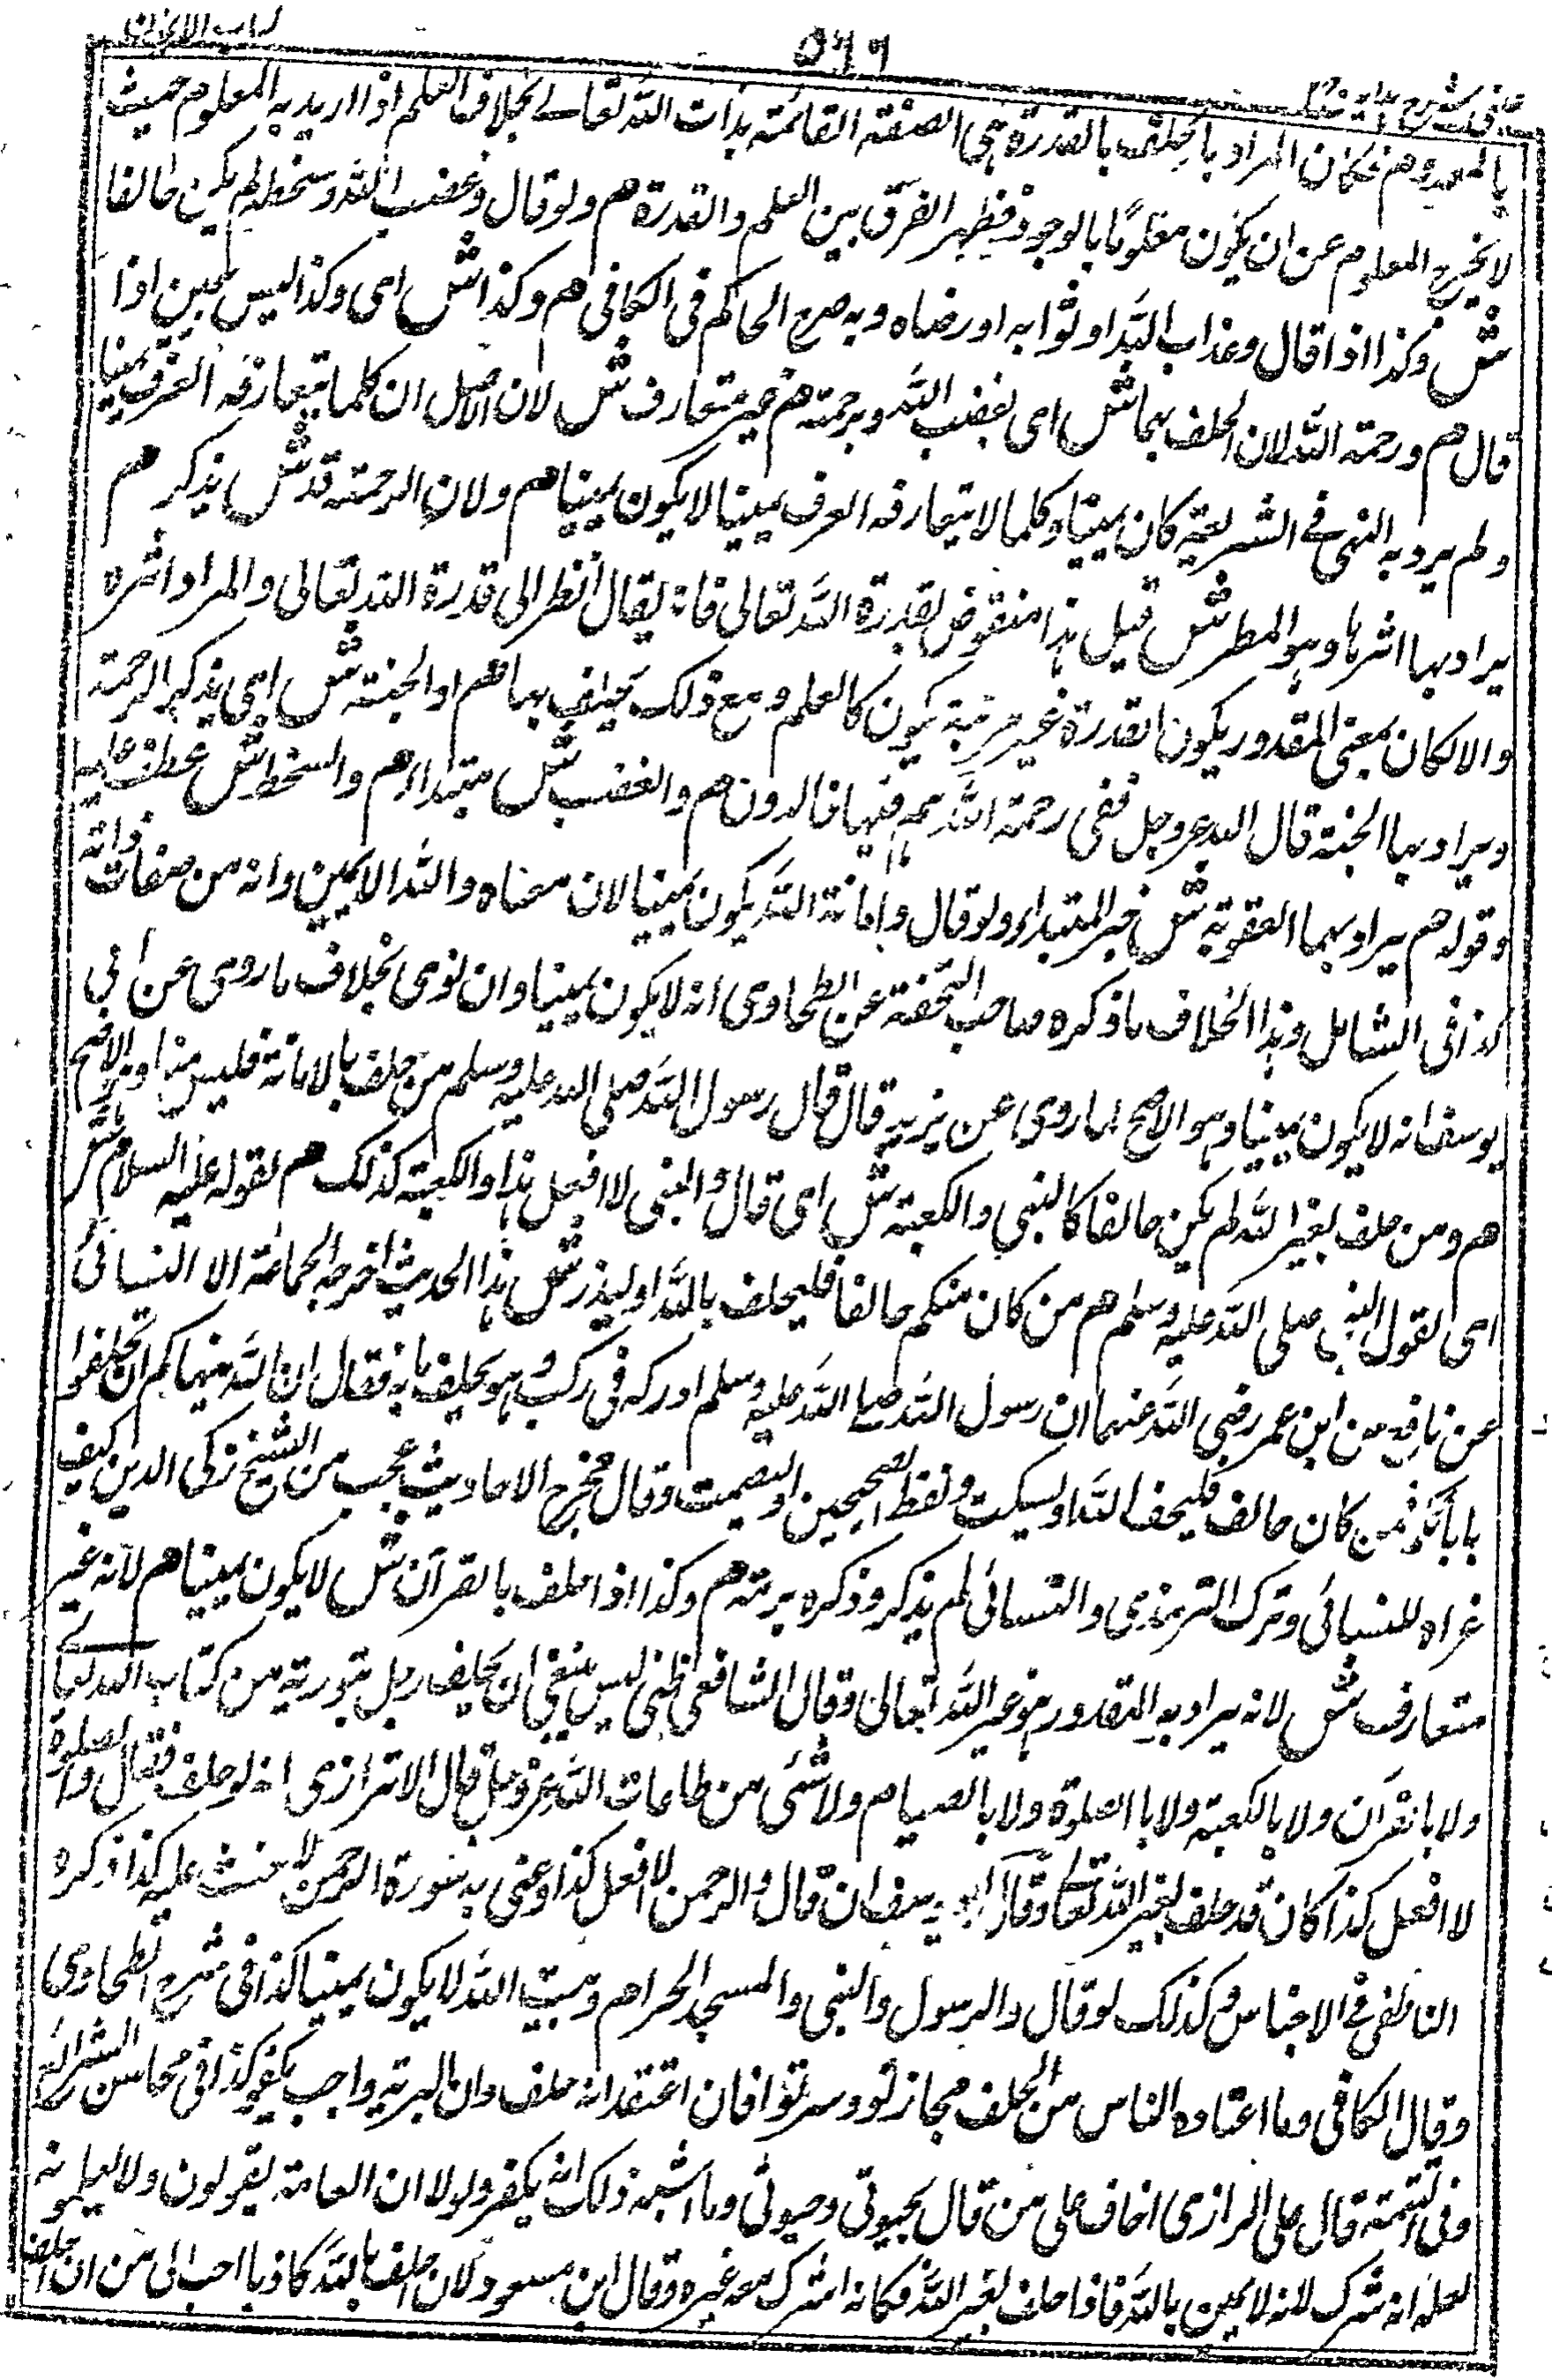 كتاب الايمان
٥٦٦
عينى شرح هداية جلد
بالمعدوم فكان المراد بالحلف بالقدرة هى الصفة القائمة بذات الله تعالى بخلاف العلم اذا اريد به المعلوم حيث
لا يخرج المعلوم عن ان يكون معلومًا بالوجود فيظهر الفرق بين العلم والقدرة هم ولو قال وغضب الله وسخطه لم يكن حالفا
ش وكذا اذا قال وعذاب الله او ثوابه او رضاه وبه صرح الحاكم فى الكافى هم وكذا ش اى وكذا ليس يمين اذا
قال هم ورحمة الله لان الحلف بهما ش اى بغضب الله وبرحمته هم غير متعارف ش لان الاصل ان كلما يتعارفه العرف يمينا
ولم يرد به النهى فى الشريعة كان يمينا وكلما لا يتعارفه العرف يمينا لا يكون يمينا هم ولان الرحمة قد ش يذكر هم
يراد بها اثرها وهو المطر ش قيل هذا منقوض بقدرة الله تعالى فانه يقال انظر الى قدرة الله تعالى والمراد اثره
والا لكان بمعنى المقدور يكون القدرة غير مرئية يكون كالعلم ومع ذلك يحلف بها هم او الجنة ش اى يذكر الرحمة
ويراد بها الجنة قال الله عز وجل ففى رحمة الله هم فيها خالدون هم والغضب ش مبتداء هم والسخط ش عطف عليه
وقوله هم يراد بهما العقوبة ش خبر المبتداء ولو قال وامانة الله يكون يمينا لان معناه والله الامين وانه من صفات ذاته
كذا فى الشامل وهذا الخلاف ما ذكره صاحب التحفة عن الطحاوى انه لا يكون يمينا وان نوى بخلاف ما روى عن ابى
يوسف انه لا يكون يمينا وهو الاصح لما روى عن بريده قال قال رسول الله صلى الله عليه وسلم من حلف بالامانة فليس منا وهو الاصح
هم ومن حلف بغير الله لم يكن حالفا كالنبى والكعبة ش اى قال والنبى لا افعل هذا والكعبة كذلك هم لقوله عليه السلام ش
اى لقول النبى صلى الله عليه وسلم هم من كان منكم حالفا فليحلف بالله او ليذر ش هذا الحديث اخرجه الجماعة الا النسائى
عن نافع عن ابن عمر رضى الله عنهما ان رسول الله صلى الله عليه وسلم ادركه فى ركب وهو يحلف بابيه فقال ان الله ينهاكم ان تحلفوا
بابائكم فمن كان حالفا فليحلف بالله او ليسكت ولفظ الصحيحين او ليصمت وقال مخرج الاحاديث عجب من الشيخ زكى الدين كيف
عزاه للنسائى وترك الترمذى والنسائى لم يذكر وذكره برمته هم وكذا اذا حلف بالقرآن ش لا يكون يمينا هم لانه غير
متعارف ش لانه يراد به المقدور هو غير الله تعالى وقال الشافعى ظنى ليس ينبغى ان يحلف رجل بتورية من كتاب الله تعالى
ولا بالقرآن ولا بالكعبة ولا بالصلوة ولا بالصيام ولا شئى من طاعات الله عز وجل قال الاترازى انه لو حلف فقال والصلوة
لا افعل كذا كان قد حلف بغير الله تعالى وقال ابو يوسف ان قال والرحمن لا افعل كذا وعنى به سورة الرحمن لا حنث عليه كذا ذكره
الناطفى فى الاجناس وكذلك لو قال والرسول والنبى والمسجد الحرام وبيت الله لا يكون يمينا كذا فى شرح الطحاوى
وقال الكافى وما اعتاده الناس من الحلف بجان تو وسر تو فان اعتقد انه حلف وان البر به واجب يكفر كذا فى محاسن الشرائع
وفى التتمة قال على الرازى اخاف على من قال بحيوتى وحيوتك وما اشبه ذلك انه يكفر ولولا ان العامة يقولون ولا يعلمونه
لعله انه شرك لانه لا يمين بالله فاذا حلف بغير الله فكانه اشرك معه غيره وقال ابن مسعود لان احلف بالله كاذبا احب الى من ان احلف